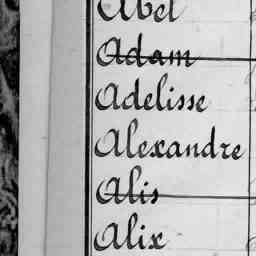 Abel
Adam
Adelisse
Alexandre
Alis
Alix